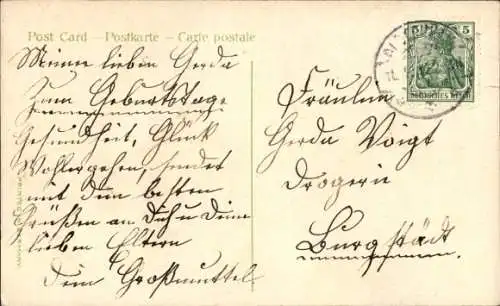 Post Card – Postkarte – Carte postale
Meiner lieben Gerda
zum Geburtstage
Gesundheit, Glück
Wohlergehen, sendet
mit den besten
Grüßen an Dich u Deine
lieben Eltern
Dein Großmuttel
5 5
DEUTSCHES REICH
Fräulein
Gerda Voigt
Drogerie
Burgstädt